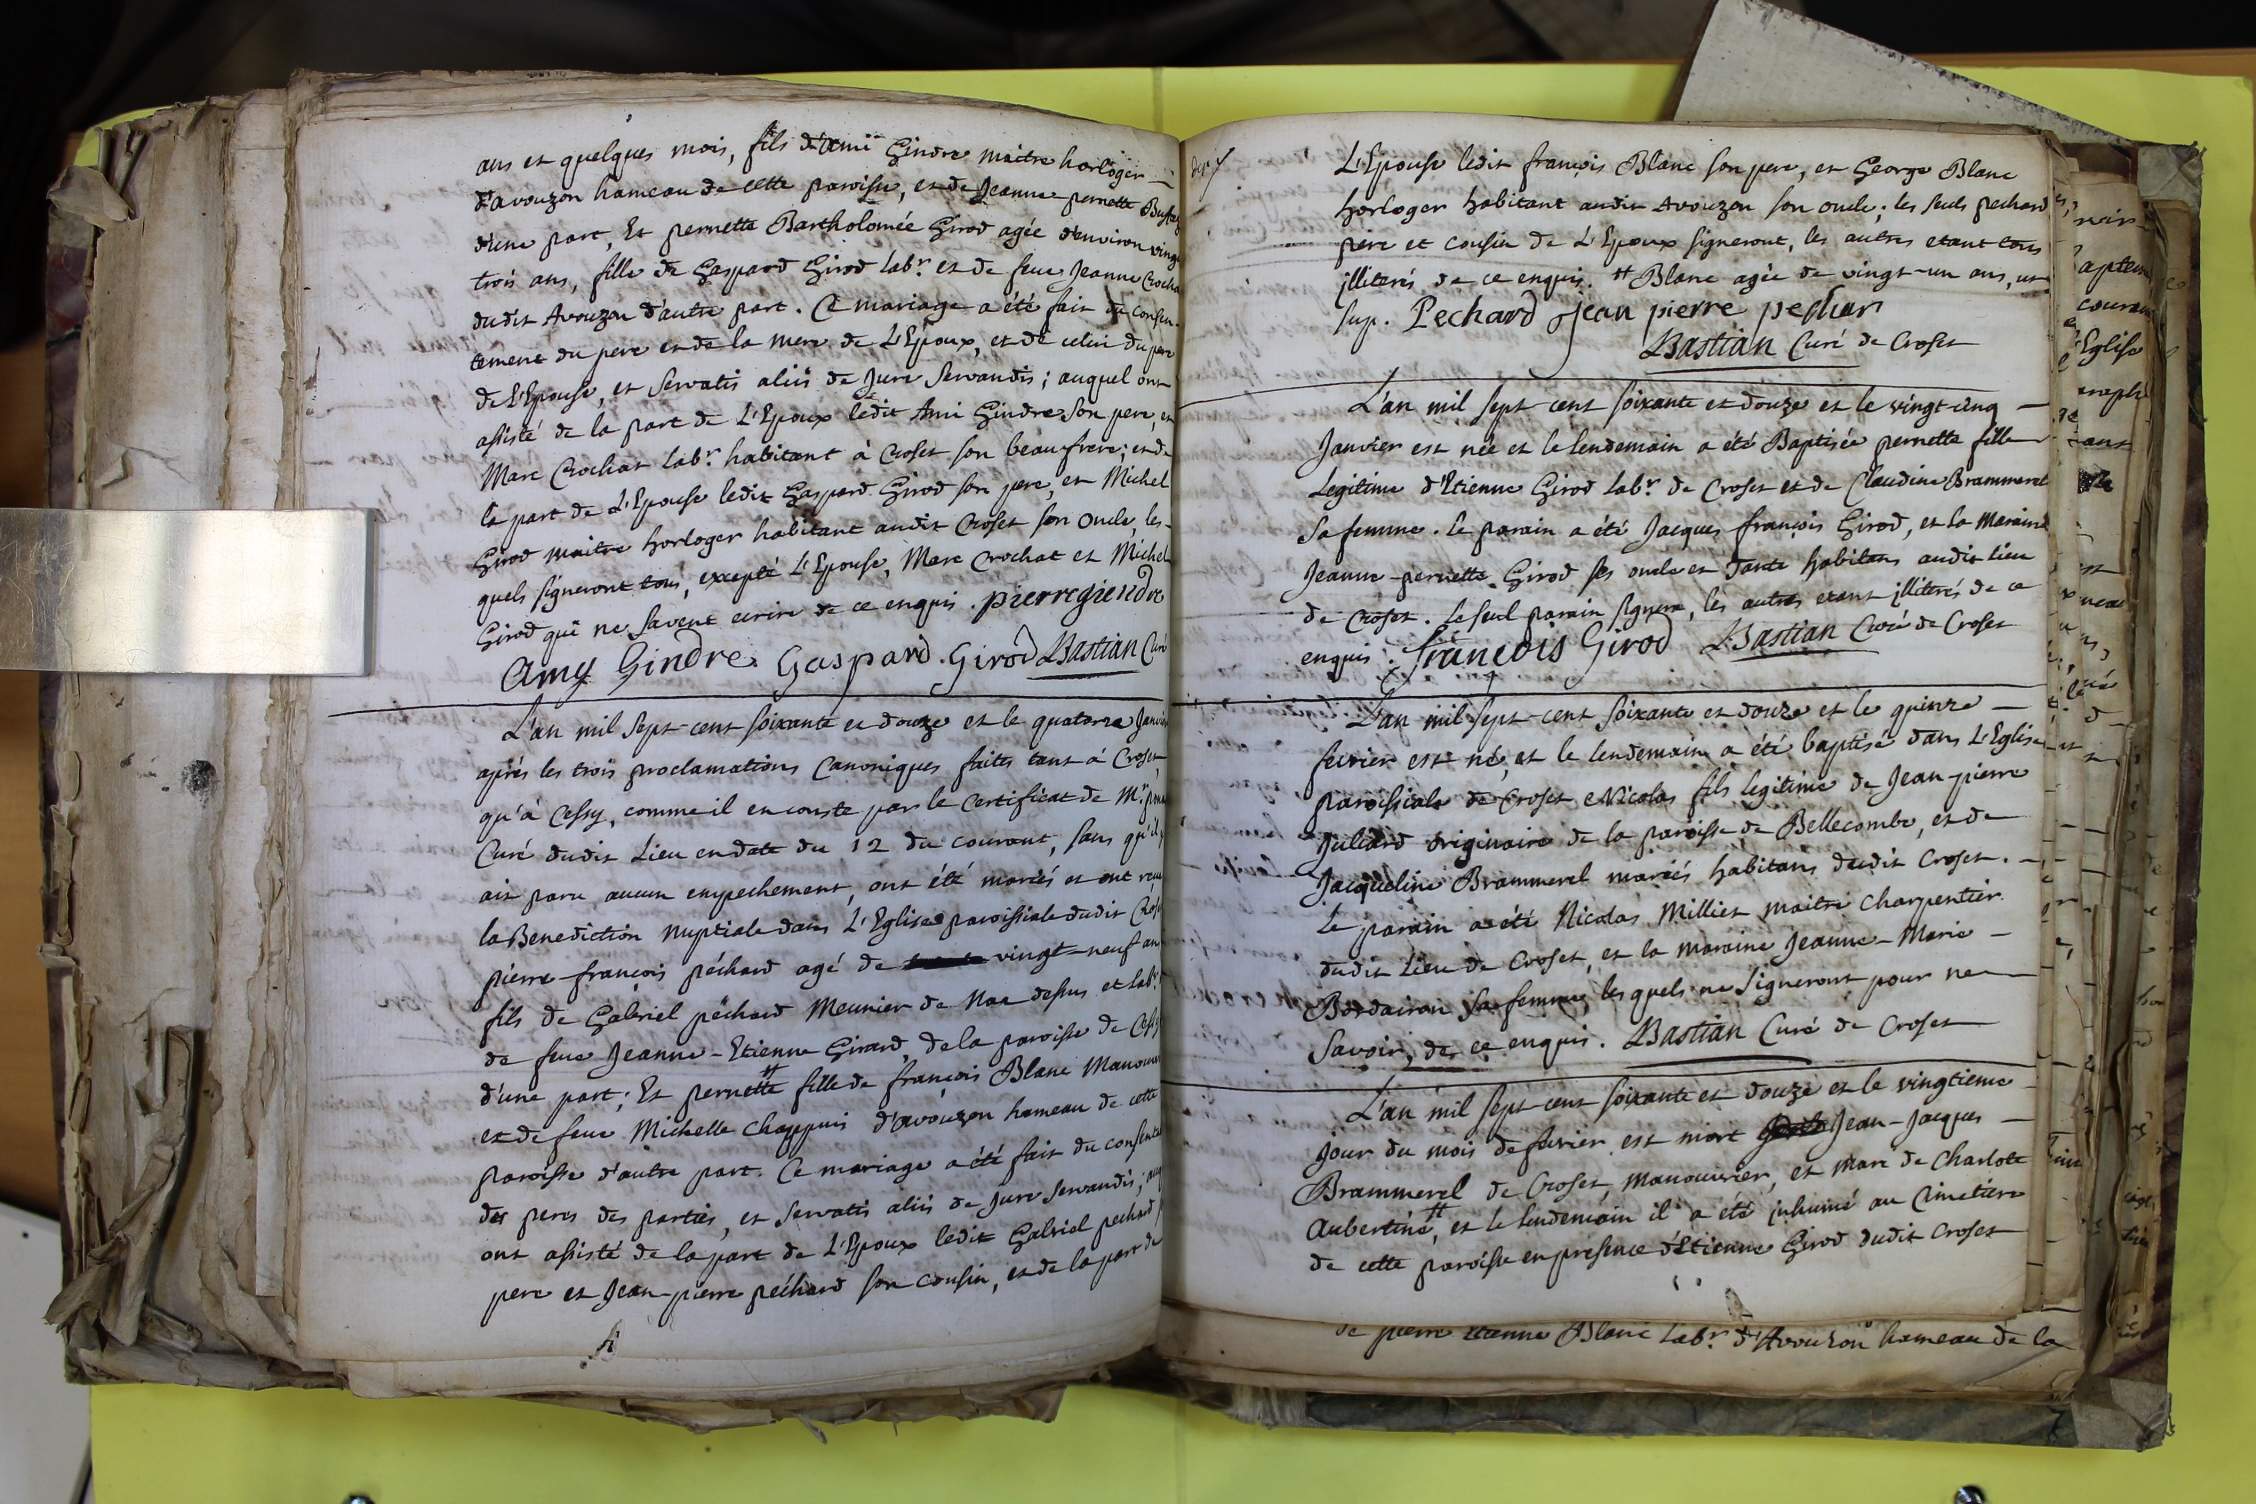 ans et quelques mois, fils d'Ami Gindre maitre horloger
d'avouzon hameau de cette paroisse, et de Jeanne pernette
d'une part, Et pernette Bartholomée Girod agée d'environ vingt
trois ans, fille de Gaspard Girod labr. et de feue Jeanne Crochat
dudit Avouzon d'autre part. Ce mariage a été fait du consen-
tement du pere et de la mere de L'Epoux, et de celui du pere
de L'Epouse, et servatis aliis de Jure servandis; auquel ont
assisté de la part de L'Epoux ledit Ami Gindre son pere, et
Marc Crochat labr. habitant à Croset son beaufrere; et de
la part de L'Epouse ledit Gaspard Girod son pere, et Michel
Girod maitre horloger habitant audit Croset son oncle, les-
quels signeront tous, excepté L'Epouse, Marc Crochat et Michel
Girod qui ne savent ecrire de ce enquis. pierre giendre
Amy Gindre Gaspard Girod Bastian Curé
L'an mil sept-cent soixante et douze et le quatorze Janvier
après les trois proclamations Canoniques faites tant à Croset
qu'à Cessy, comme il en conste par le Certificat de Mr.
Curé dudit Lieu en date du 12 du courant, sans qu'il y
ait paru aucun empechement, ont été mariés et ont recu
la Benediction nuptiale dans L'Eglise paroissiale dudit Croset
pierre-françois péchard agé de vingt-neuf ans
fils de Gabriel péchard Meunier de Naz dessus et labr.
de feue Jeanne-Etienne Girard, de la paroisse de Cessy
d'une part; Et pernette # fille de françois Blanc Manouvrier
et de feue Michelle Chappuis d'avouzon hameau de cette
paroisse d'autre part. Ce mariage a été fait du consente
des peres des parties, et servatis aliis de Jure servandis; auq
ont assisté de la part de L'Epoux ledit Gabriel pechard
pere et Jean-pierre péchard son cousin, et de la part de
L'Epouse ledit françois Blanc son pere, et George Blanc
horloger habitant audit Avouzon son oncle; les seuls pechard
pere et cousin de L'Epoux signeront, les autres etant tous
illiterés de ce enquis. # Blanc agée de vingt-un ans, ut
sup. Pechard jean pierre pechar
Bastian Curé de Croset
L'an mil sept-cent soixante et douze et le vingt-cinq
Janvier est née et le lendemain a été Baptisée pernette fille
Legitime d'Etienne Girod labr. de Croset et de Claudine Brammerel
sa femme. Le parain a été Jacques françois Girod, et la Maraine
Jeanne-pernette Girod ses oncle et tante habitans audit lieu
de Croset. Le seul parain signera, les autres etant illiterés de ce
enquis. françois Girod Bastian Curé de Croset
L'an mil sept-cent soixante et douze et le quinze
fevrier est né, et le lendemain a été baptisé dans L'Eglise
paroissiale de Croset Nicolas fils legitime de Jean-pierre
Julliard originaire de la paroisse de Bellecombe, et de
Jacqueline Brammerel mariés habitans dudit Croset.
Le parain a été Nicolas Milliet maitre Charpentier
dudit Lieu de Croset, et la maraine Jeanne-Marie
Bordairon sa femme, lesquels ne signeront pour ne
savoir, de ce enquis. Bastian Curé de Croset
L'an mil sept-cent soixante et douze et le vingtieme
jour du mois de fevrier est mort Jean-Jacques
Brammerel de Croset, manouvrier, et mari de Charlote
Aubertine #, et le lendemain il a été inhumé au Cimetiere
de cette paroisse en presence d'Etienne Girod dudit Croset
de pierre Etienne Blanc Labr. d'Avouzon hameau de la